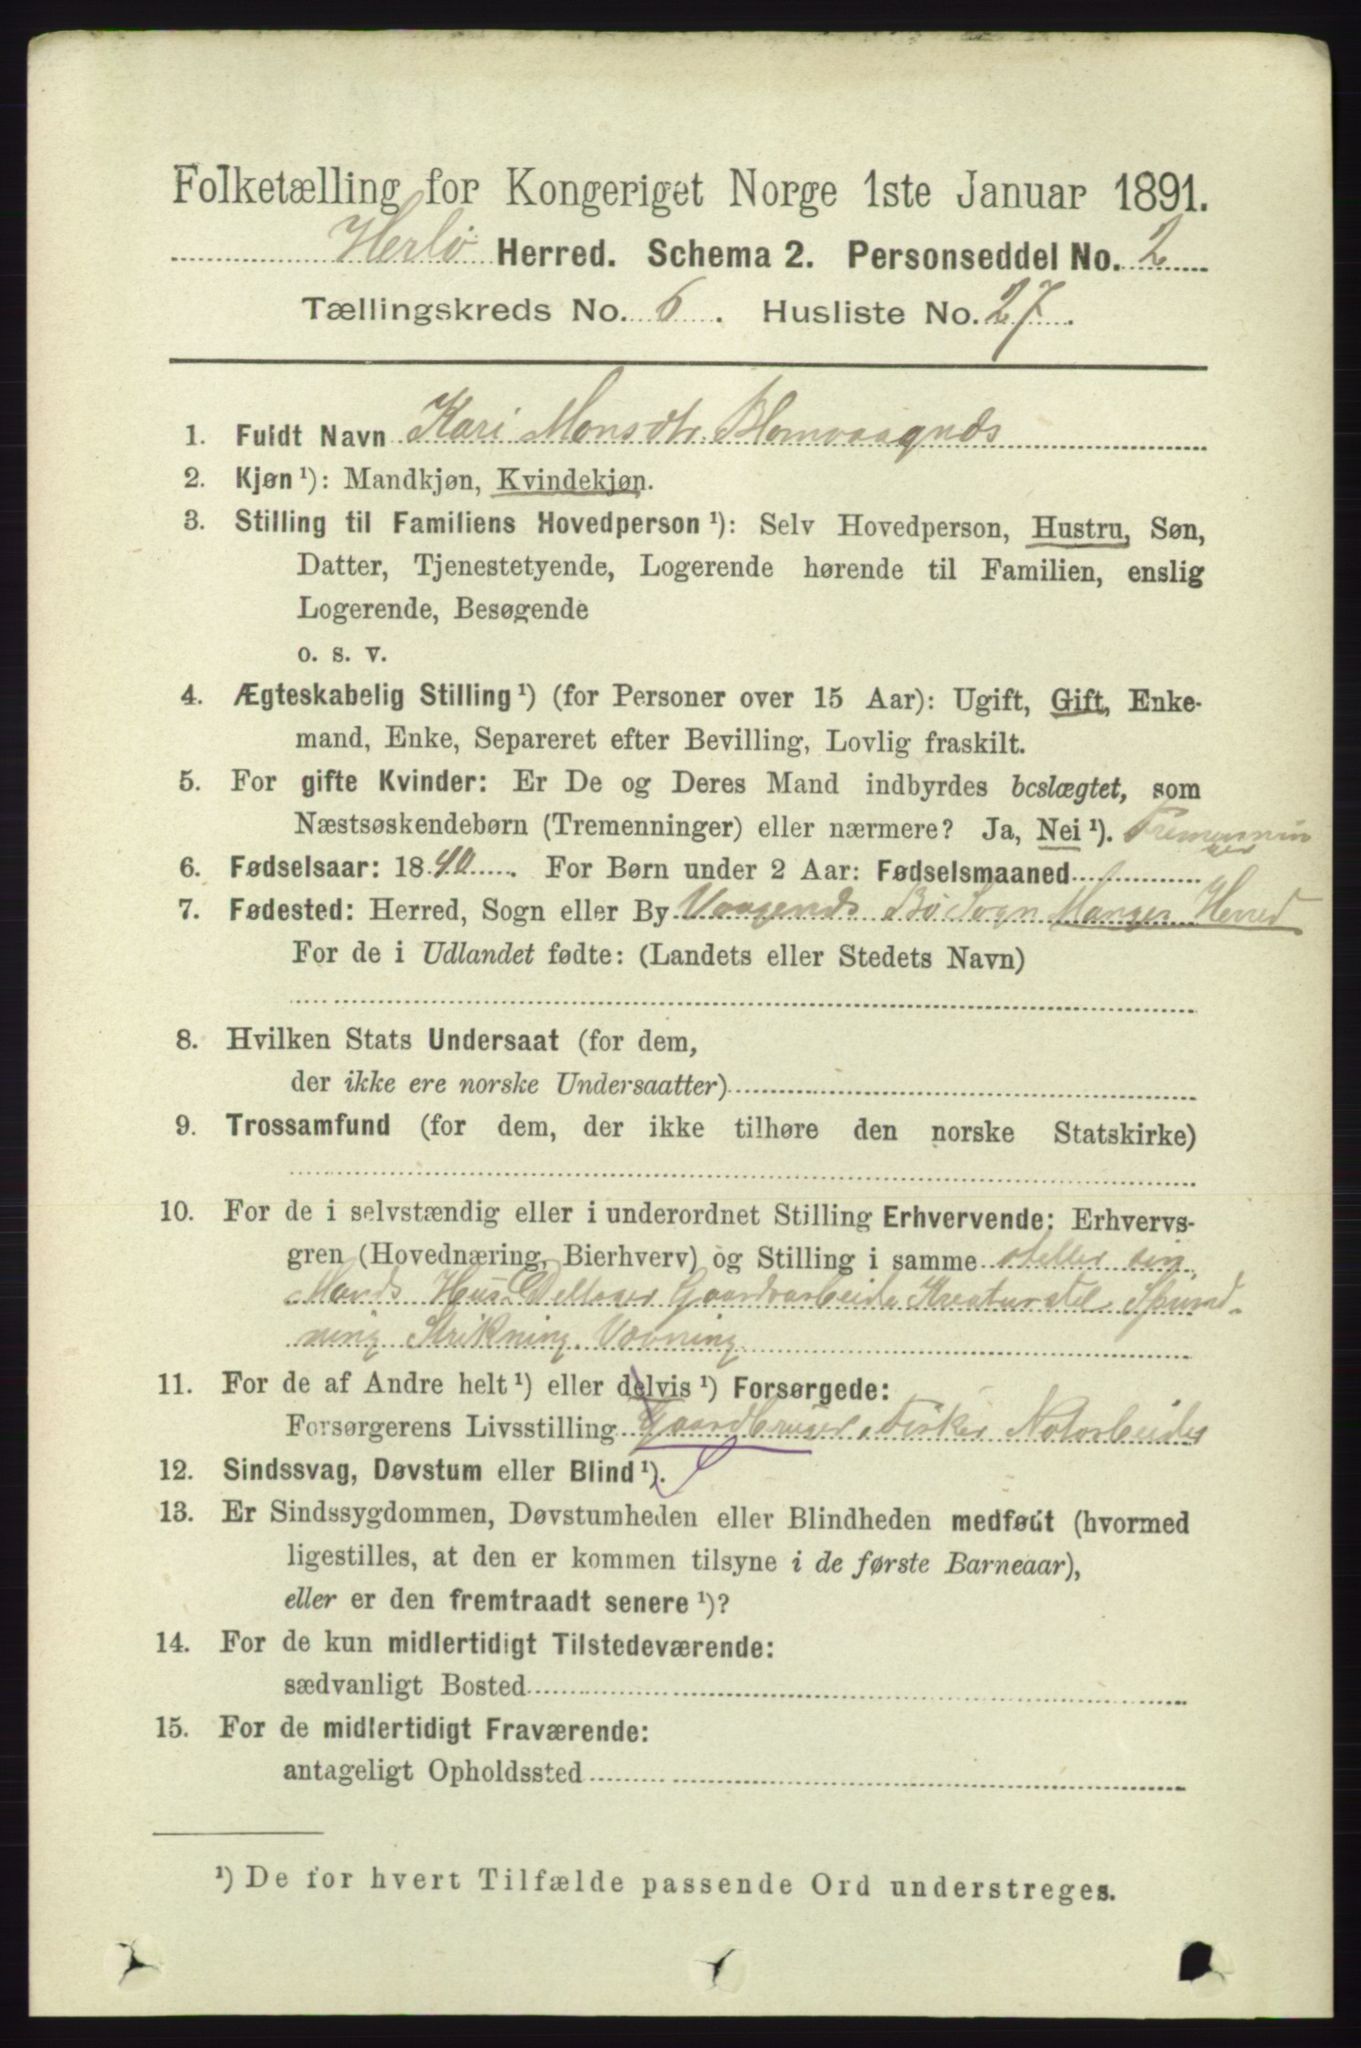 Folketælling for Kongeriget Norge 1ste Januar 1891.
Herlø Herred. Schema 2. Personseddel No. 2
Tællingskreds No. 6. Husliste No. 27.
1. Fuldt Navn Kari Monsdtr. Blomvaagnæs
2. Kjøn ¹): Mandkjøn, Kvindekjøn.
3. Stilling til Familiens Hovedperson ¹): Selv Hovedperson, Hustru, Søn,
Datter, Tjenestetyende, Logerende hørende til Familien, enslig
Logerende, Besøgende
o. s. v.
4. Ægteskabelig Stilling ¹) (for Personer over 15 Aar): Ugift, Gift, Enke-
mand, Enke, Separeret efter Bevilling, Lovlig fraskilt.
5. For gifte Kvinder: Er De og Deres Mand indbyrdes beslægtet, som
Næstsøskendebørn (Tremenninger) eller nærmere? Ja, Nei ¹). Tremennin
ger
6. Fødselsaar: 1840. For Børn under 2 Aar: Fødselsmaaned
7. Fødested: Herred, Sogn eller By Bø Sogn Manger Herred
For de i Udlandet fødte: (Landets eller Stedets Navn)
8. Hvilken Stats Undersaat (for dem,
der ikke ere norske Undersaatter)
9. Trossamfund (for dem, der ikke tilhøre den norske Statskirke)
10. For de i selvstændig eller i underordnet Stilling Erhvervende: Erhvervs-
gren (Hovednæring, Bierhverv) og Stilling i samme steller sin
Mands Hus. Deltager Gaardsarbeide Kreaturstel Spind-
ning Strikning. Vævning
11. For de af Andre helt ¹) eller delvis ¹) Forsørgede:
Forsørgerens Livsstilling Gaardbruger, Fisker Notarbeider
12. Sindssvag, Døvstum eller Blind ¹).
13. Er Sindssygdommen, Døvstumheden eller Blindheden medfødt (hvormed
ligestilles, at den er kommen tilsyne i de første Barneaar),
eller er den fremtraadt senere ¹)?
14. For de kun midlertidigt Tilstedeværende:
sædvanligt Bosted
15. For de midlertidigt Fraværende:
antageligt Opholdssted
¹) De for hvert Tilfælde passende Ord understreges.